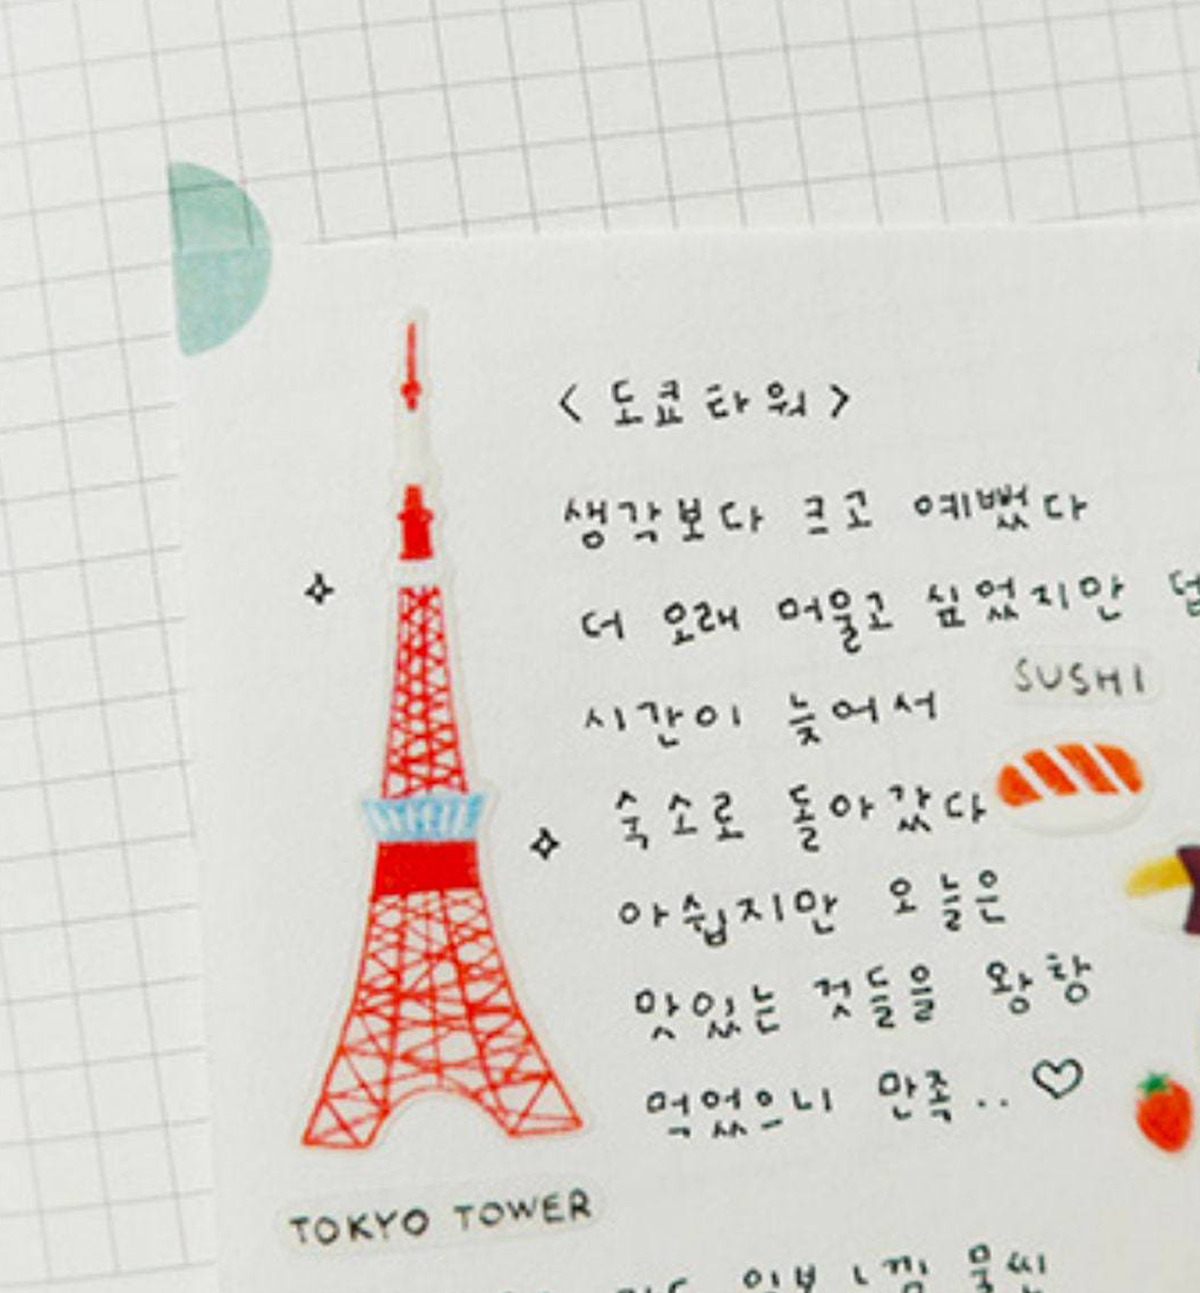 <도쿄타워>
생각보다 크고 예뻤다
더 오래 머물고 싶었지만
SUSHI
시간이 늦어서
숙소로 돌아갔다
아쉽지만 오늘은
맛있는 것들을 왕창
먹었으니 만족.. ♡
TOKYO TOWER